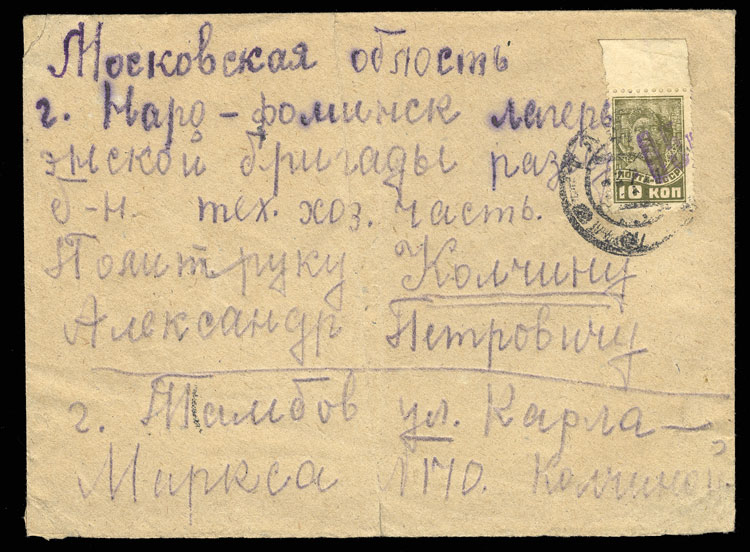 Московская область
г. Наро-фоминск лагерь
энской бригады раз
б-н. тех. хоз. часть.
Политруку Колчину
Александр Петровичу
г. Тамбов ул. Карла-
Маркса 170. Колчиной
10 КОП